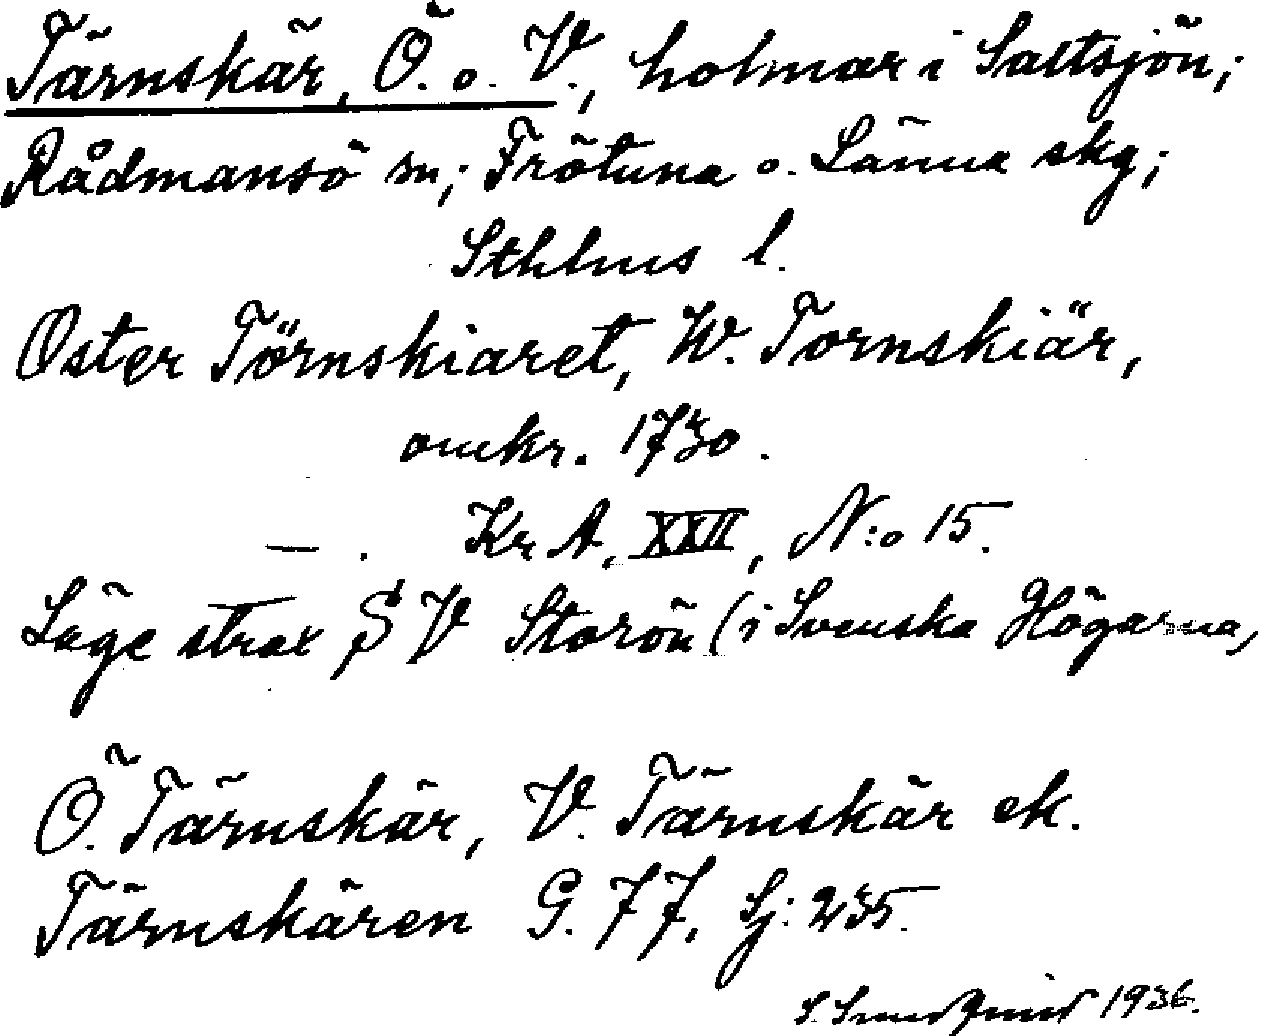 Tärnskär, Ö. o. V., holmar i Saltsjön;
Rådmansö sn; Frötuna o. Länna skg;
Sthlms l.
Öster Törnskiaret, W. Tornskiär,
omkr. 1730.
— . Kr A, XXII, N:o 15.
Läge strax SV Storön (i Svenska Högarna,
Ö. Tärnskär, V. Tärnskär ek.
Tärnskären G. 77, Sj: 235.
S. 1936.